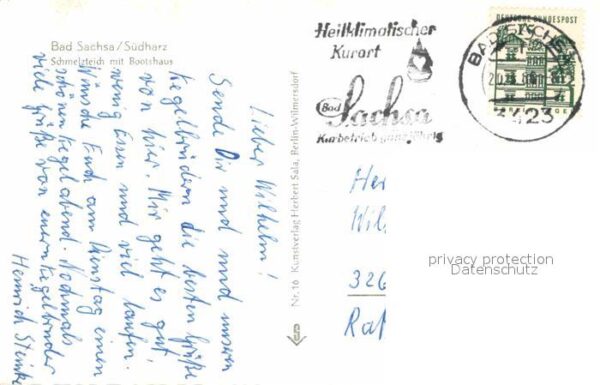 Bad Sachsa/Südharz
Schmelzteich mit Bootshaus
Lieber Wilhelm!
Sende Dir und unseren
Kegelbrüdern die besten Grüße
von hier. Mir geht es gut,
wenig Essen und viel laufen.
Wünsche Euch am Dienstag einen
schönen Kegelabend. Nochmals
viele Grüße von eurem Kegelbruder
Heinrich
Nr. 16 Kunstverlag Herbert Sala, Berlin-Wilmersdorf
Heilklimatischer
Kurort
Bad
Sachsa
Kurbetrieb ganzjährig
DEUTSCHE BUNDESPOST
BAD SACHSA
3423
Her
Wil
326
Rat
privacy protection
Datenschutz